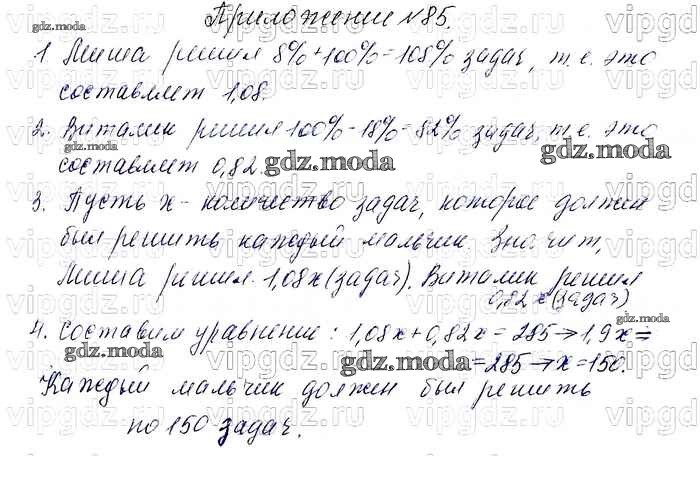 Приложение №85.
1 Миша решил 8%+100%=108% задач, т.е. это
составляет 1,08.
2. Виталик решил 100%-18%=82% задач, т.е. это
составляет 0,82.
3. Пусть x - количество задач, которое должен
был решить каждый мальчик. Значит,
Миша решил 1,08x (задач). Виталик решил
0,82x (задач)
4. Составим уравнение: 1,08x+0,82x=285→1,9x=
=285→x=150.
Каждый мальчик должен был решить
по 150 задач.
gdz.moda
gdz.moda
gdz.moda
gdz.moda
gdz.moda
gdz.moda
gdz.moda
gdz.moda
vipgdz.ru